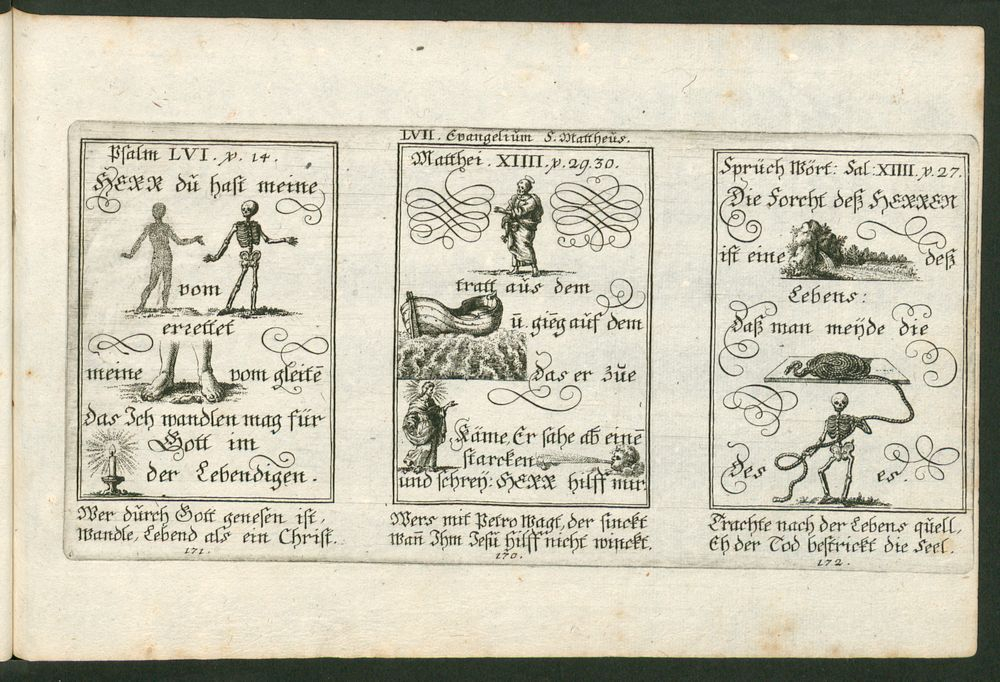 LVII. Evangelium S. Mattheus.
Psalm LVI. v. 14.
HERR du hast meine
vom
errettet
meine vom gleitē
das Ich wandlen mag für
Gott im
der Lebendigen.
Wer durch Gott genesen ist,
Wandle, Lebend als ein Christ.
171.
Matthei. XIIII. v. 29. 30.
tratt aus dem
ū. gieng auf dem
das er zue
Käme, Er sahe ab einē
starcken
und schrey: HERR hilff mir
Wers mit Petro wagt, der sinckt
wañ Ihm Jesu hilff nicht winckt.
170.
Sprüch Wört: Sal: XIIII. v. 27.
Die Forcht deß HERREN
ist eine deß
Lebens:
Daß man meyde die
des es.
Trachte nach der Lebens quell,
Eh der Tod bestrickt die Seel.
172.